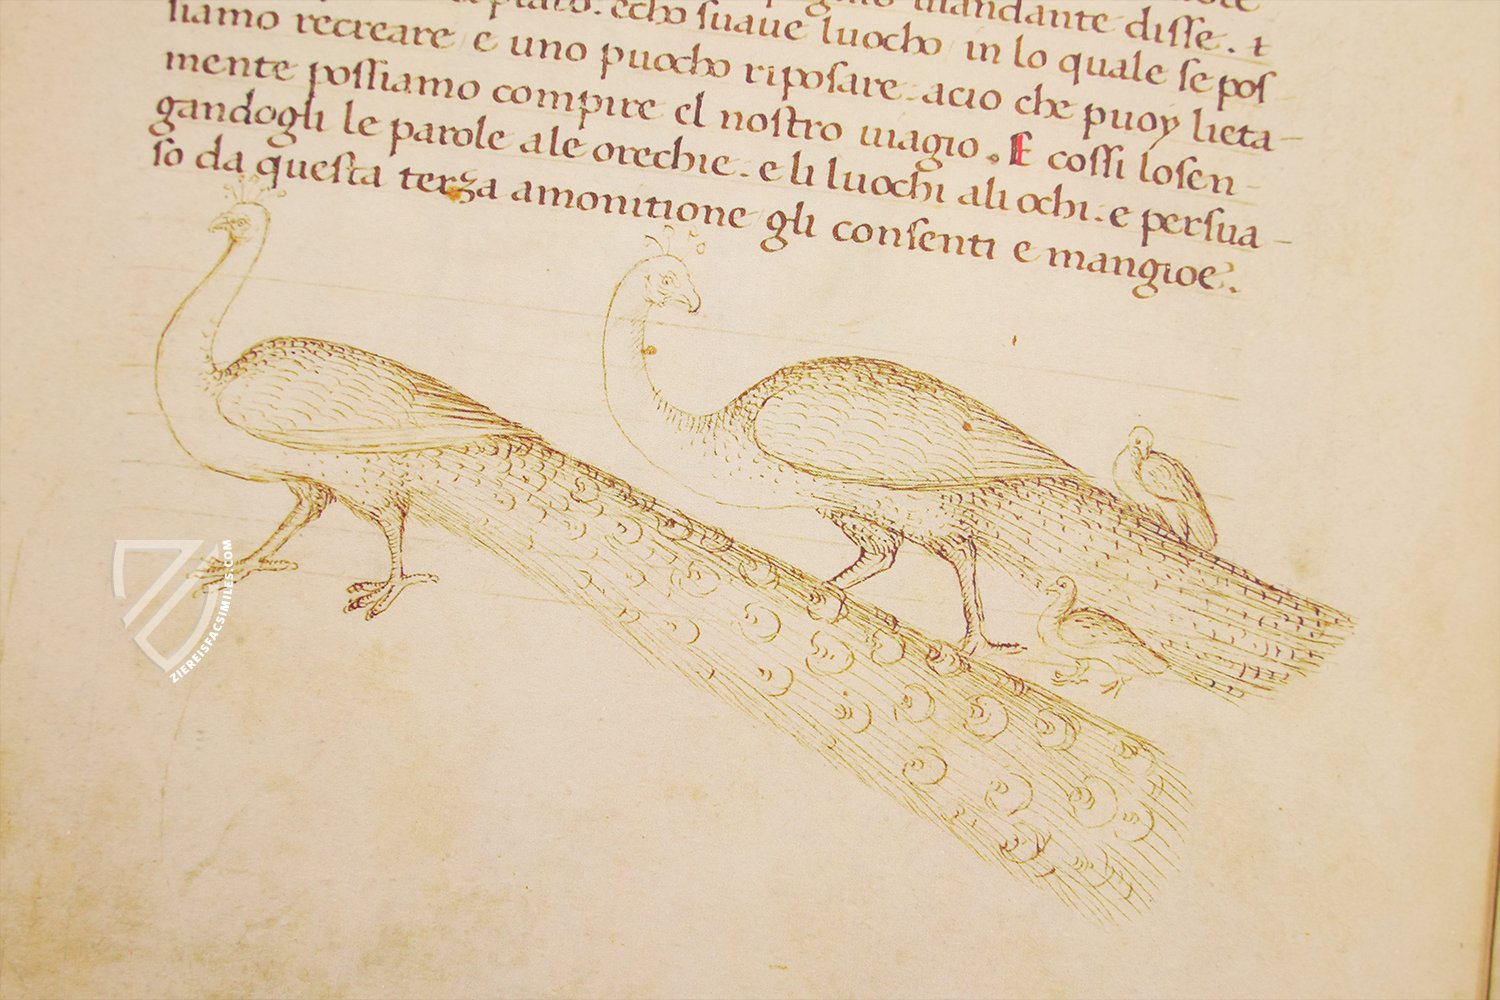 mandante disse. τ
liamo recreare e uno puocho riposare. acio che puoy lieta-
echo suaue luocho in lo quale se pos
mente possiamo compire el nostro uiagio. E cossi losen-
gandogli le parole ale orechie. e li luochi ali ochi. e persua-
so da questa terza amonitione gli consenti e mangioe.
ZIEREISFACSIMILES.COM